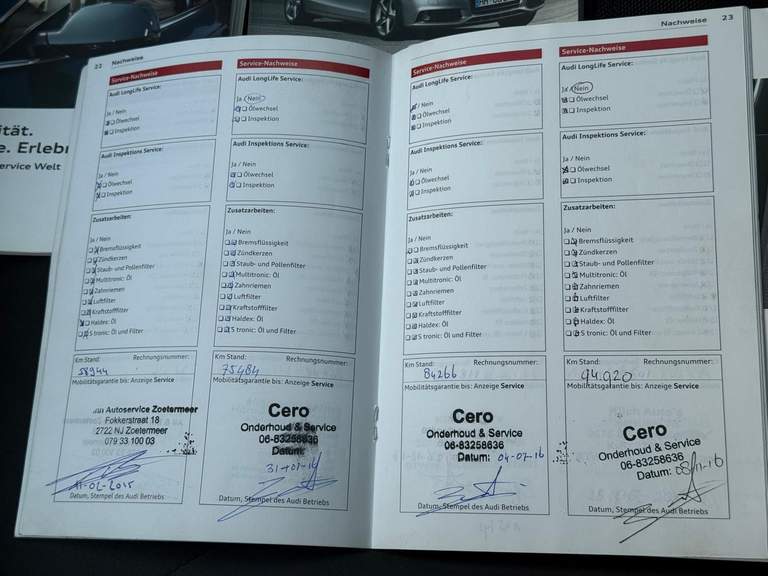 ität.
e. Erlebn
ervice Welt
22 Nachweise
Service-Nachweise
Audi LongLife Service:
Ja / Nein
Ölwechsel
Inspektion
Audi Inspektions Service:
Ja / Nein
Ölwechsel
Inspektion
Zusatzarbeiten:
Ja / Nein
Bremsflüssigkeit
Zündkerzen
Staub- und Pollenfilter
Multitronic: Öl
Zahnriemen
Luftfilter
Kraftstofffilter
Haldex: Öl
S tronic: Öl und Filter
Km Stand: Rechnungsnummer:
58944
Mobilitätsgarantie bis: Anzeige Service
Autoservice Zoetermeer
Fokkerstraat 18
2722 NJ Zoetermeer
079 33 100 03
11-02-2015
Datum, Stempel des Audi Betriebs
Service-Nachweise
Audi LongLife Service:
Ja / Nein
Ölwechsel
Inspektion
Audi Inspektions Service:
Ja / Nein
Ölwechsel
Inspektion
Zusatzarbeiten:
Ja / Nein
Bremsflüssigkeit
Zündkerzen
Staub- und Pollenfilter
Multitronic: Öl
Zahnriemen
Luftfilter
Kraftstofffilter
Haldex: Öl
S tronic: Öl und Filter
Km Stand: Rechnungsnummer:
75484
Mobilitätsgarantie bis: Anzeige Service
Cero
Onderhoud & Service
06-83258636
Datum:
Datum, Stempel des Audi Betriebs
Nachweise 23
Service-Nachweise
Audi LongLife Service:
Ja / Nein
Ölwechsel
Inspektion
Audi Inspektions Service:
Ja / Nein
Ölwechsel
Inspektion
Zusatzarbeiten:
Ja / Nein
Bremsflüssigkeit
Zündkerzen
Staub- und Pollenfilter
Multitronic: Öl
Zahnriemen
Luftfilter
Kraftstofffilter
Haldex: Öl
S tronic: Öl und Filter
Km Stand: Rechnungsnummer:
84266
Mobilitätsgarantie bis: Anzeige Service
Cero
Onderhoud & Service
06-83258636
Datum: 04-07-16
Datum, Stempel des Audi Betriebs
Service-Nachweise
Audi LongLife Service:
Ja / Nein
Ölwechsel
Inspektion
Audi Inspektions Service:
Ja / Nein
Ölwechsel
Inspektion
Zusatzarbeiten:
Ja / Nein
Bremsflüssigkeit
Zündkerzen
Staub- und Pollenfilter
Multitronic: Öl
Zahnriemen
Luftfilter
Kraftstofffilter
Haldex: Öl
S tronic: Öl und Filter
Km Stand: Rechnungsnummer:
94.920
Mobilitätsgarantie bis: Anzeige Service
Cero
Onderhoud & Service
06-83258636
Datum: 08/11-16
Datum, Stempel des Audi Betriebs